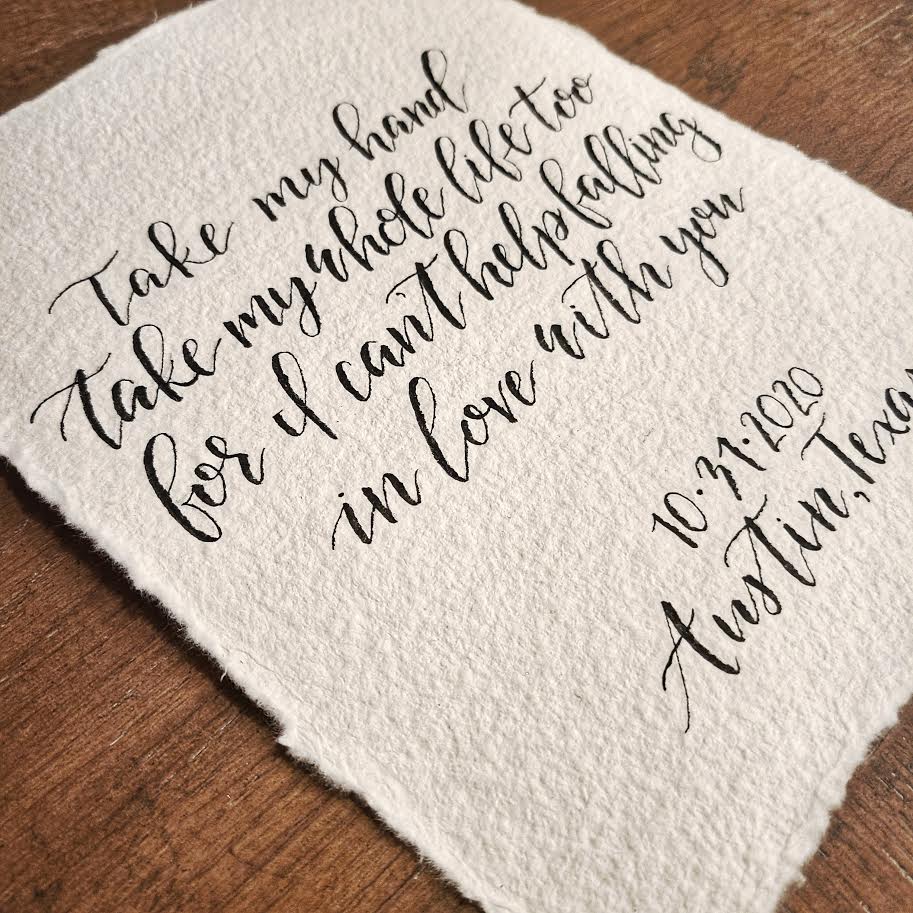 Take my hand
Take my whole life too
for I can't help falling
in love with you
10.31.2020
Austin, Texas